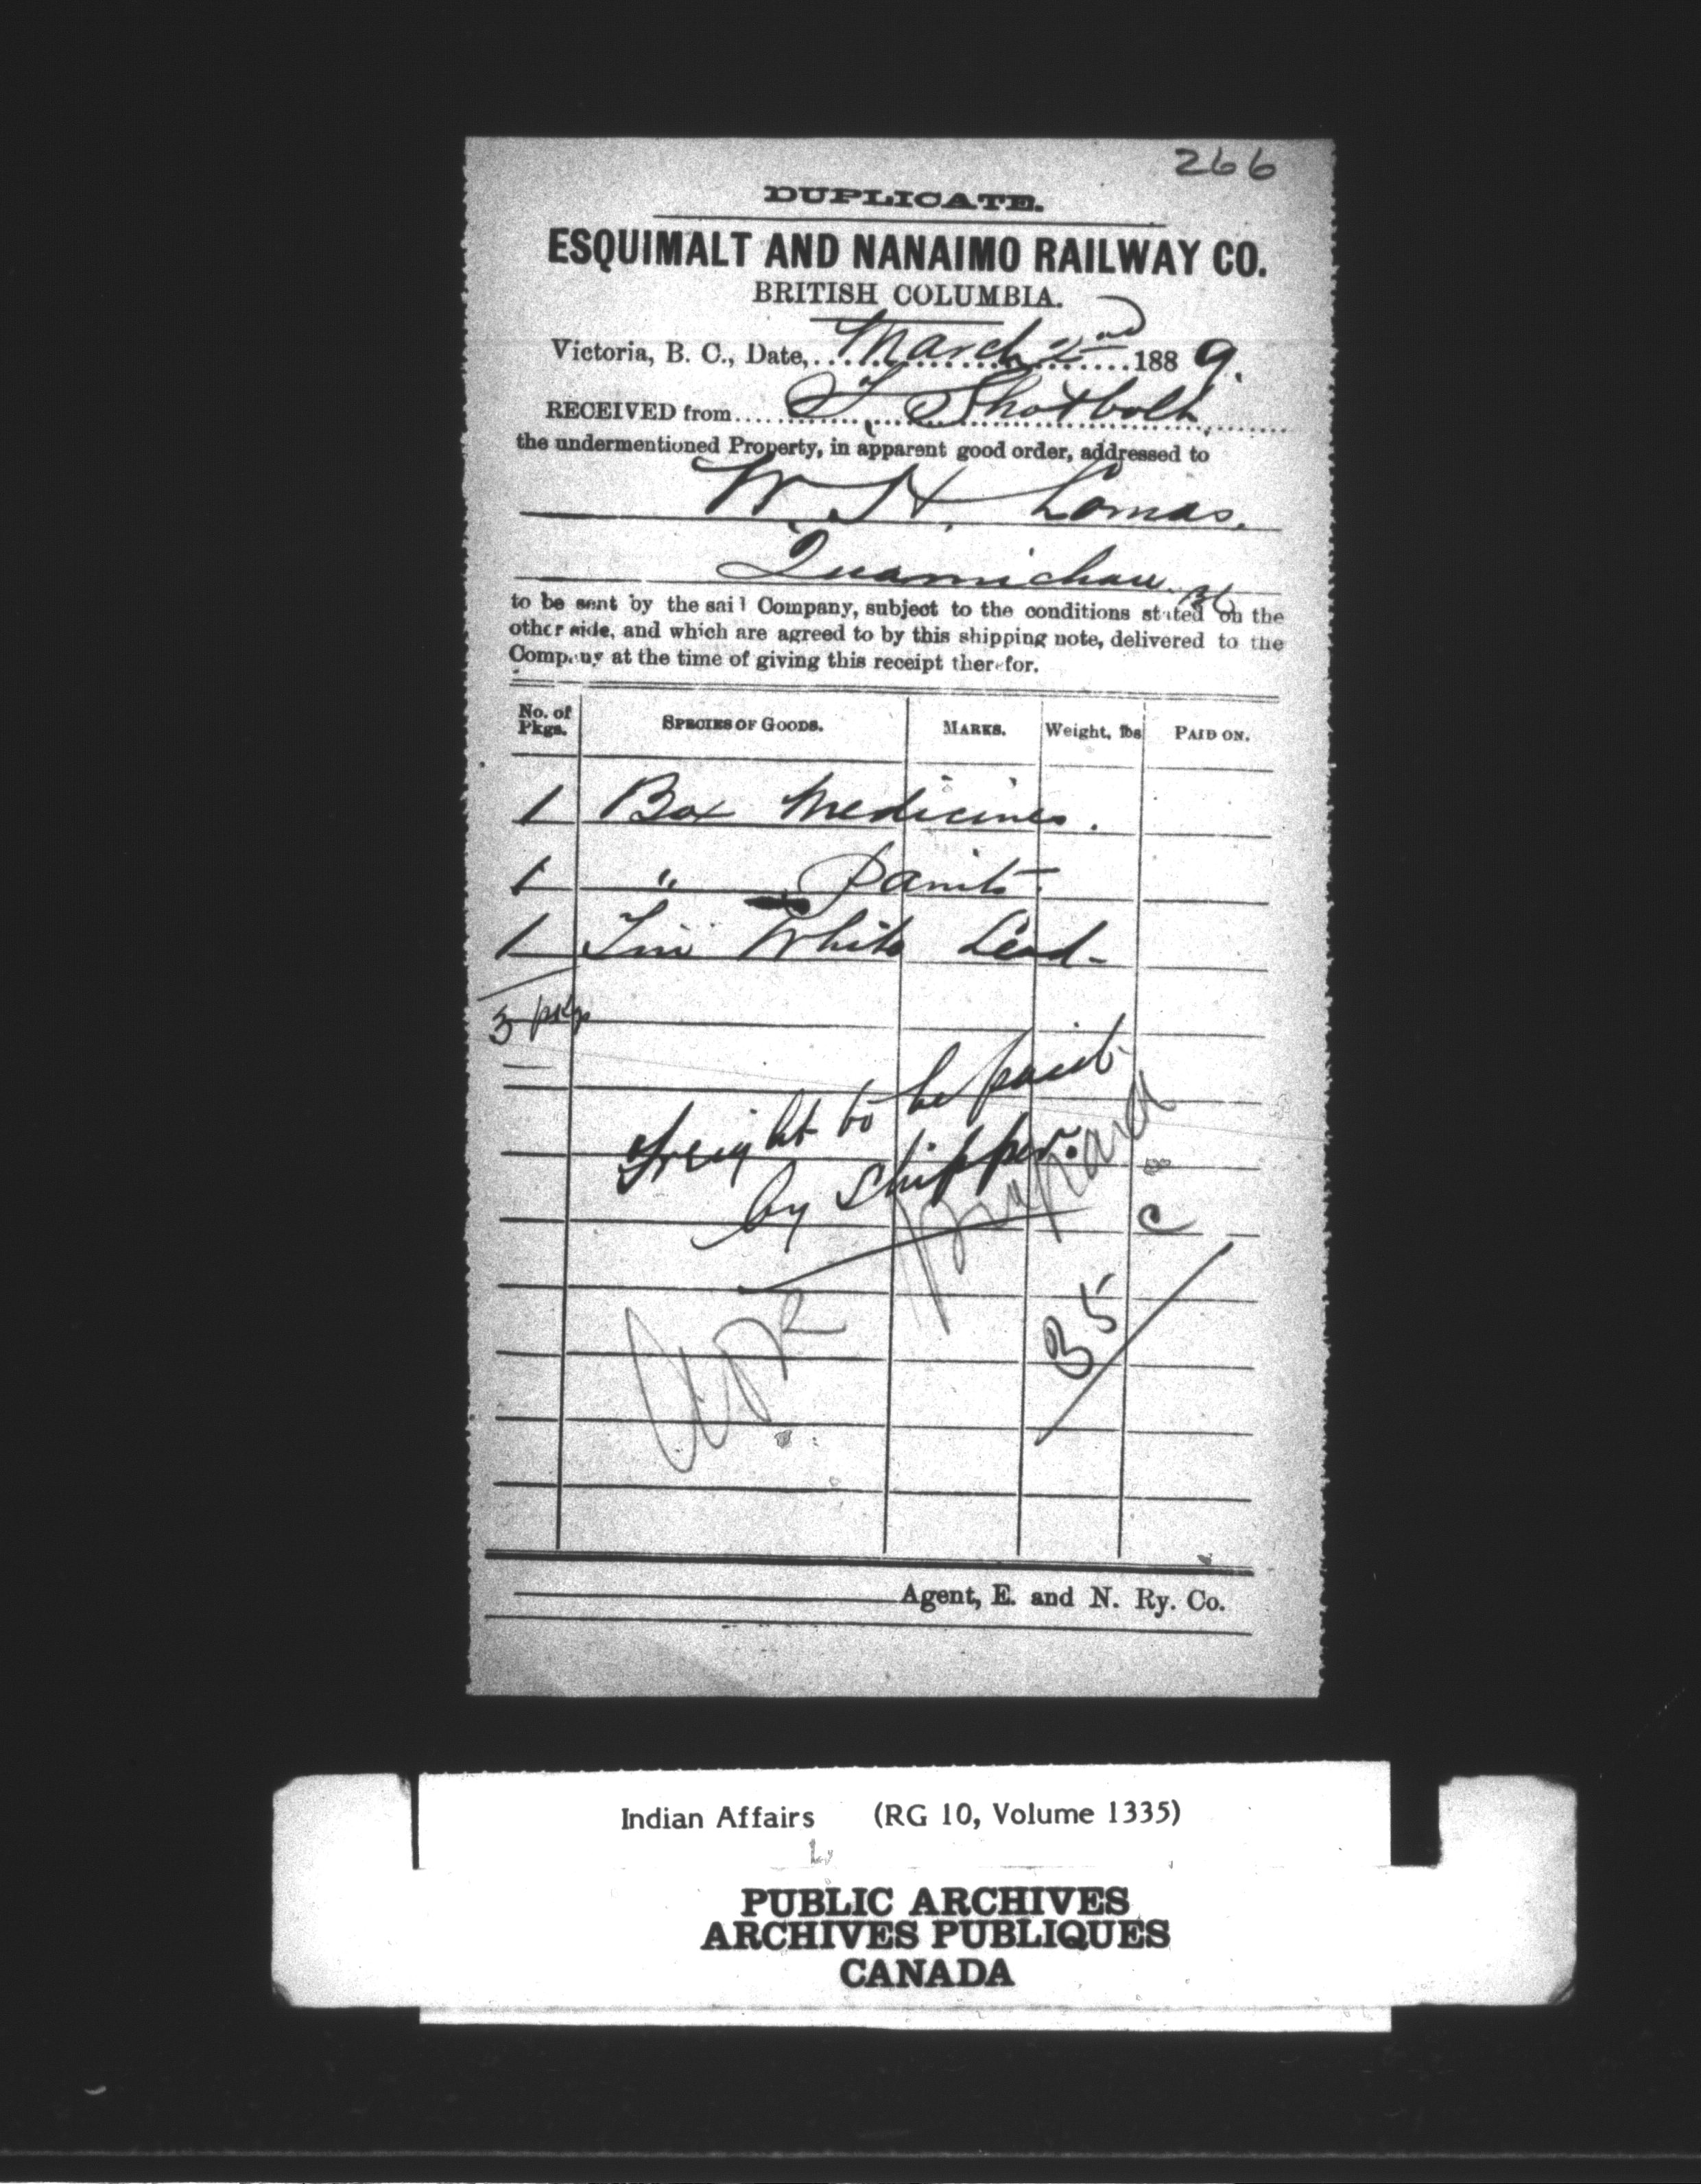 266
DUPLICATE.
ESQUIMALT AND NANAIMO RAILWAY CO.
BRITISH COLUMBIA.
Victoria, B. C., Date, March 2nd 1889.
RECEIVED from T. Shotbolt
the undermentioned Property, in apparent good order, addressed to
W. H. Lomas.
Quamichan
to be sent by the said Company, subject to the conditions stated on the
other side, and which are agreed to by this shipping note, delivered to the
Company at the time of giving this receipt therefor.
No. of Pkgs. SPECIES OF GOODS. MARKS. Weight, lbs PAID ON.
1 Box Medicines.
1 " Paints.
1 Tin White Lead-
3 pkgs
freight to be paid
by Shipper.
paid
C
35
Agent, E. and N. Ry. Co.
Indian Affairs (RG 10, Volume 1335)
PUBLIC ARCHIVES
ARCHIVES PUBLIQUES
CANADA